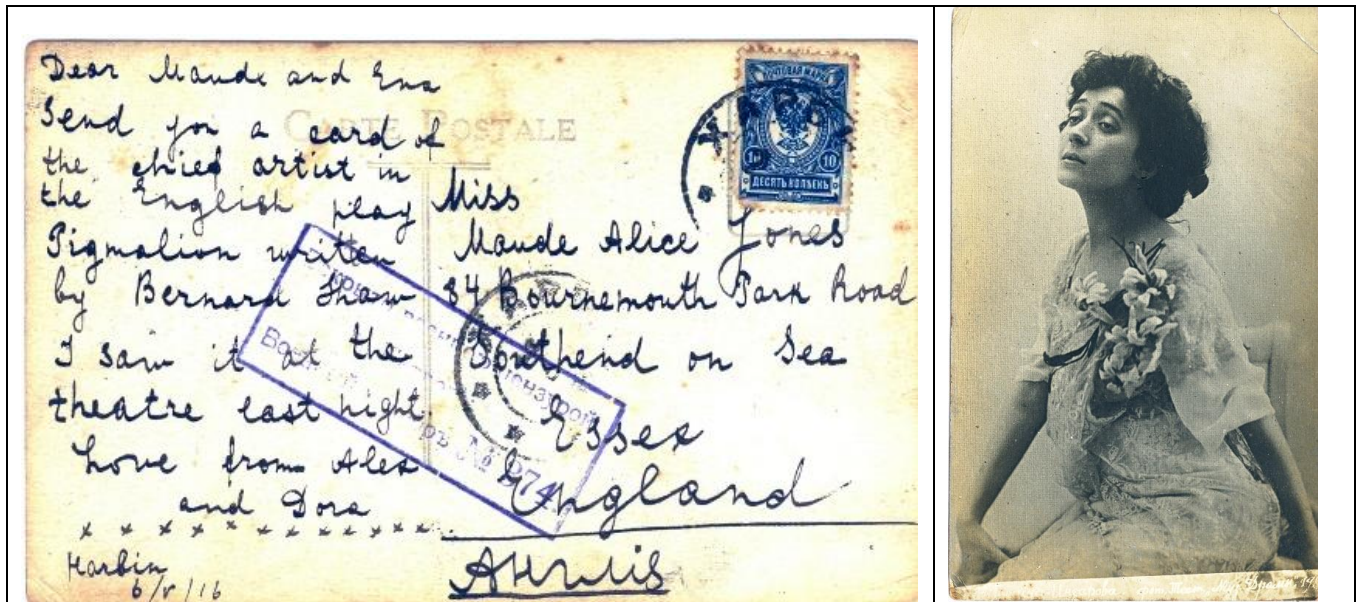 Dear Maude and Ena
Send you a card of
the chief artist in
the English play
Pigmalion written
by Bernard Shaw
I saw it at the
theatre last night.
Love from Alex
and Dora
x x x x x x x x x x x x x
Harbin
6/V/16
CARTE POSTALE
ПОЧТОВАЯ МАРКА
10 10
ДЕСЯТЬ КОПѢЕКЪ
Miss
Maude Alice Jones
84 Bournemouth Park Road
Southend on Sea
Essex
England
Англія
военной цензурой
№ 274